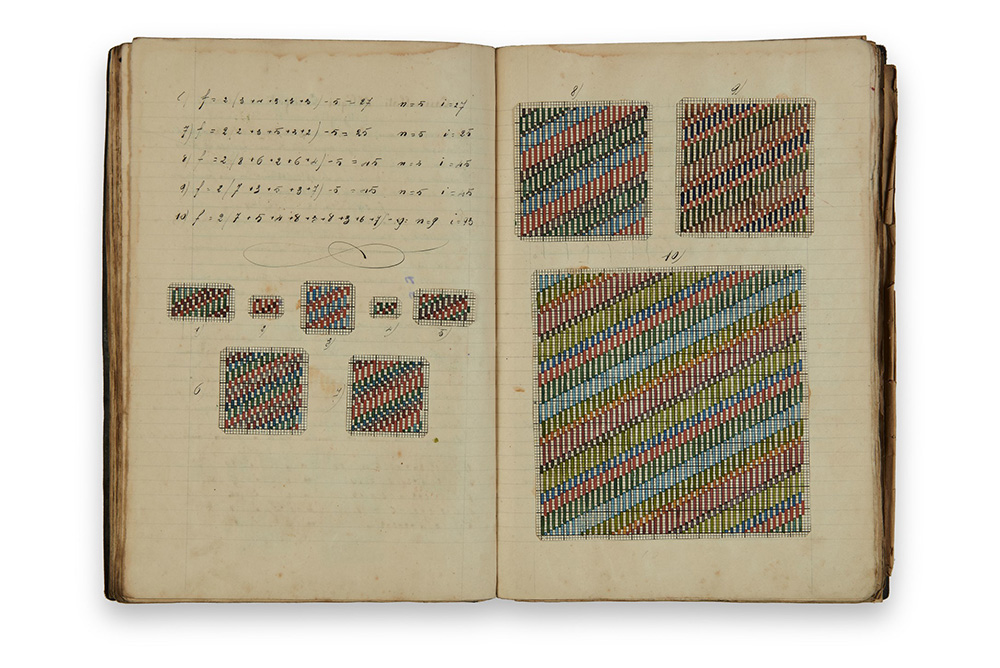 6) f = 2 (3+4+3+3+3) - 5 = 27 n=5 i=27
7) f = 2(2+3+5+3+2) - 5 = 25 n=5 i=25
8) f = 2(8+6+2+6+4) - 5 = 45 n=5 i=45
9) f = 2(7+3+5+3+7) - 5 = 45 n=5 i=45
10) f = 2(7+5+4+8+3+8+3+6+7) - 9: n=9 i=93
1
3)
5)
6
8)
9)
10)